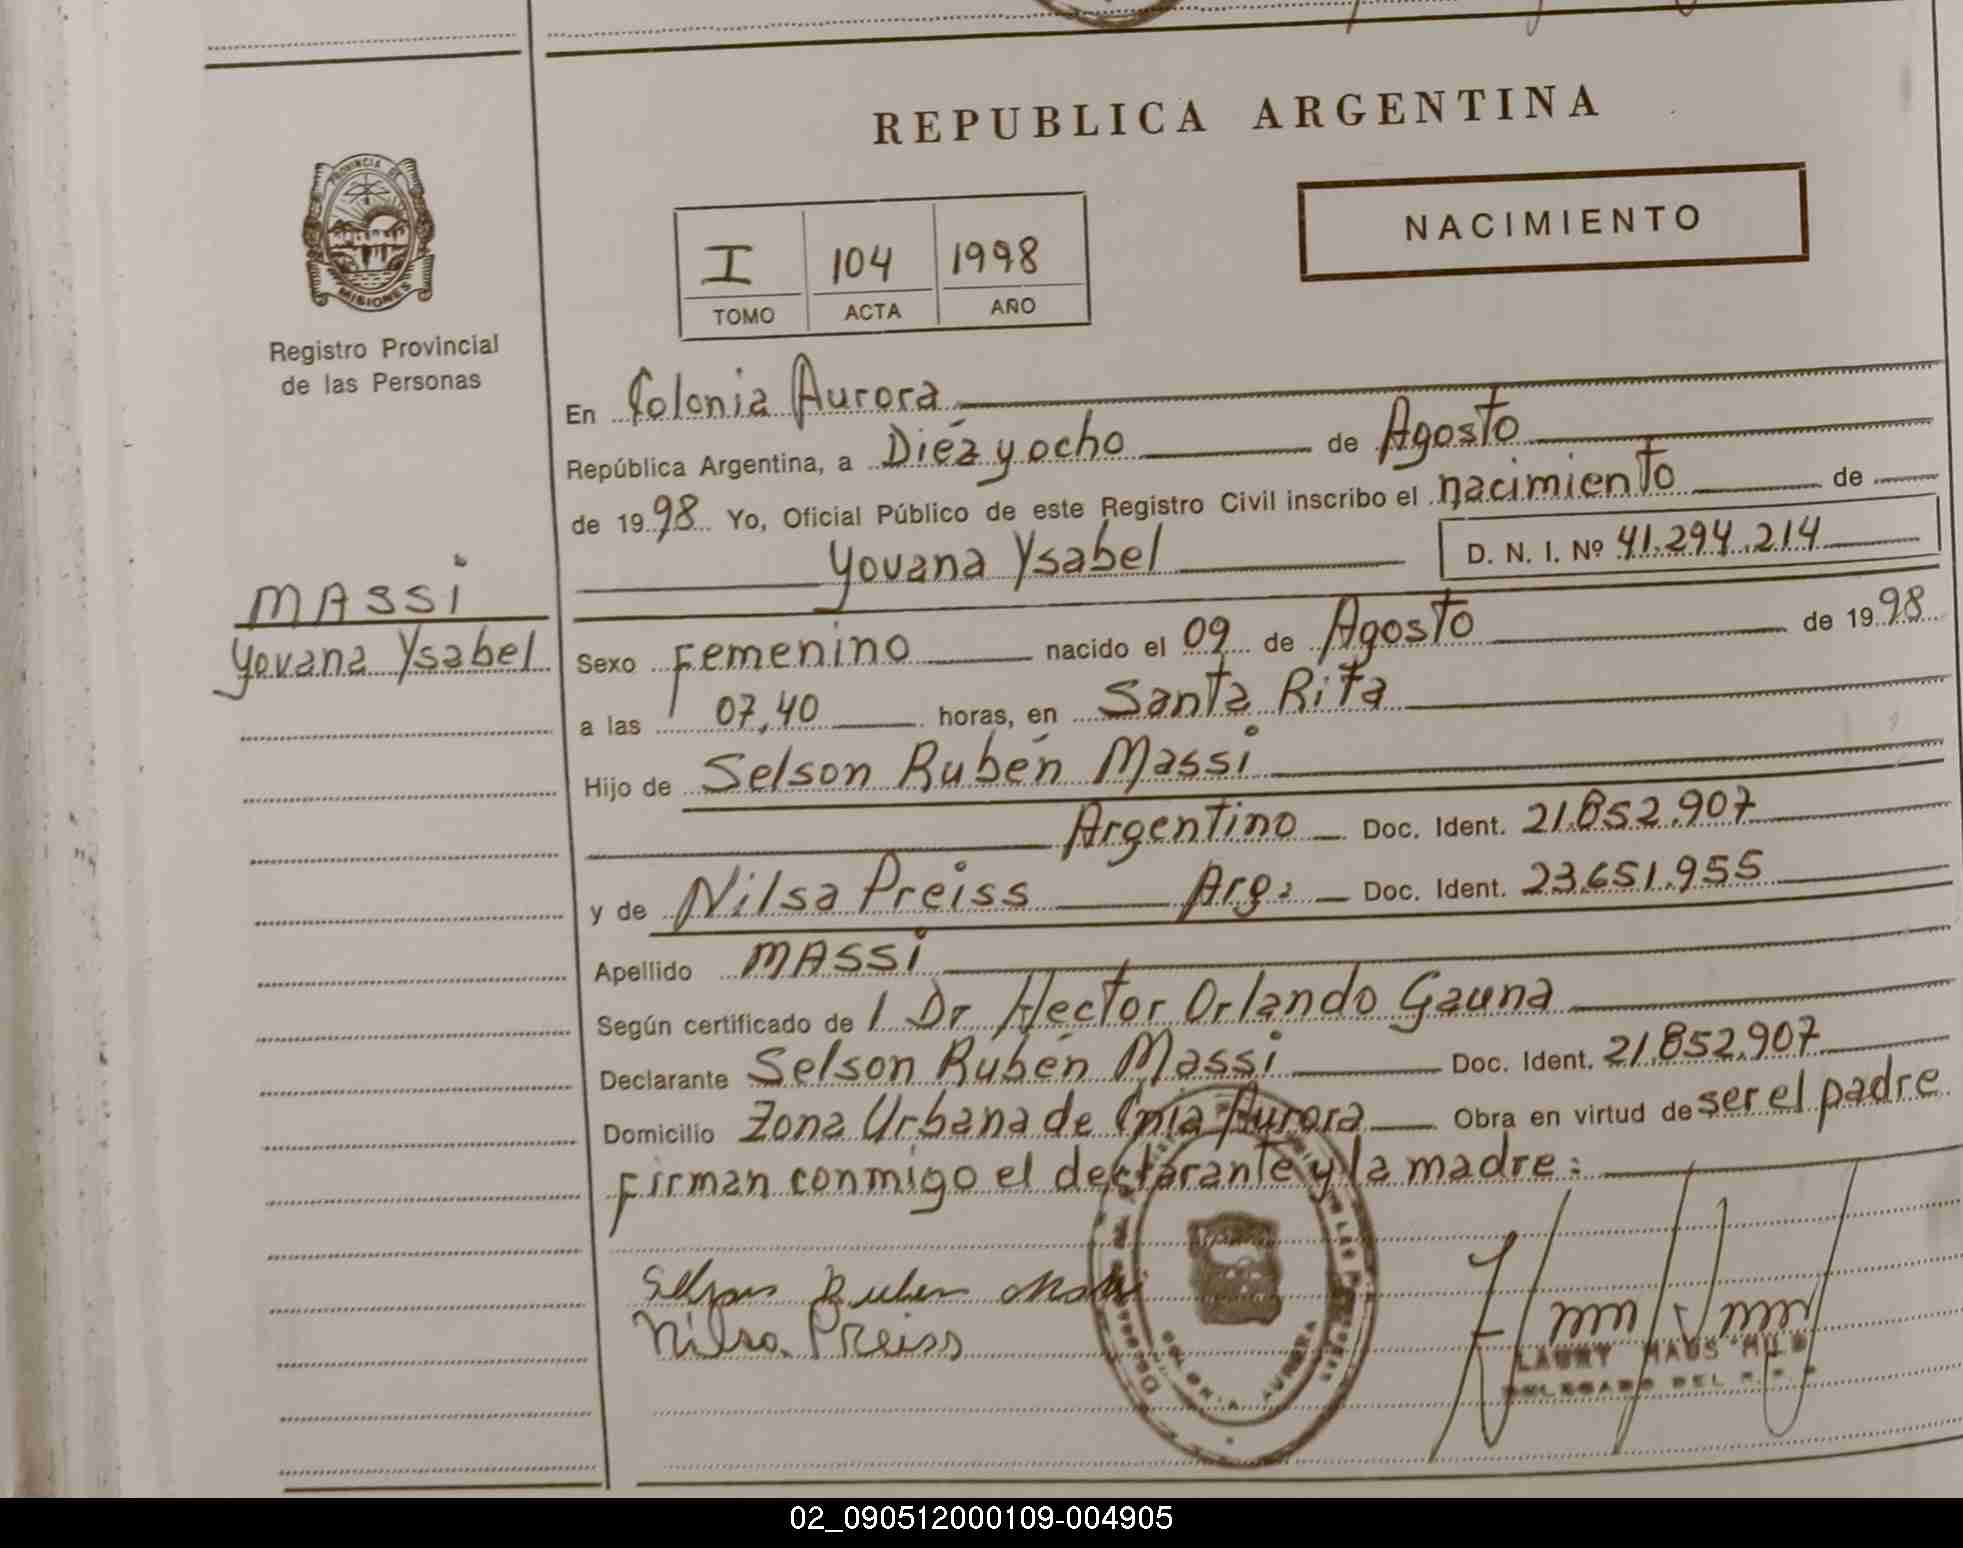 REPUBLICA ARGENTINA
NACIMIENTO
PROVINCIA DE
MISIONES
Registro Provincial
de las Personas
I 104 1998
TOMO ACTA AÑO
En Colonia Aurora
República Argentina, a Diéz y ocho de Agosto
de 1998 Yo, Oficial Público de este Registro Civil inscribo el nacimiento de
Yovana Ysabel D. N. I. Nº 41.294.214
MASSI
Yovana Ysabel
Sexo Femenino nacido el 09 de Agosto de 1998
a las 07,40 horas, en Santa Rita
Hijo de Selson Rubén Massi
Argentino Doc. Ident. 21.852.907
y de Nilsa Preiss Arg: Doc. Ident. 23.651.955
Apellido MASSI
Según certificado de l Dr Hector Orlando Gauna
Declarante Selson Rubén Massi Doc. Ident. 21.852.907
Domicilio Zona Urbana de Cnia Aurora Obra en virtud de ser el padre
Firman conmigo el declarante y la madre:
Selson Ruben Massi
Nilsa Preiss
COLONIA AURORA
LAURY HAUS
DELEGADO DEL R. P.
02_090512000109-004905